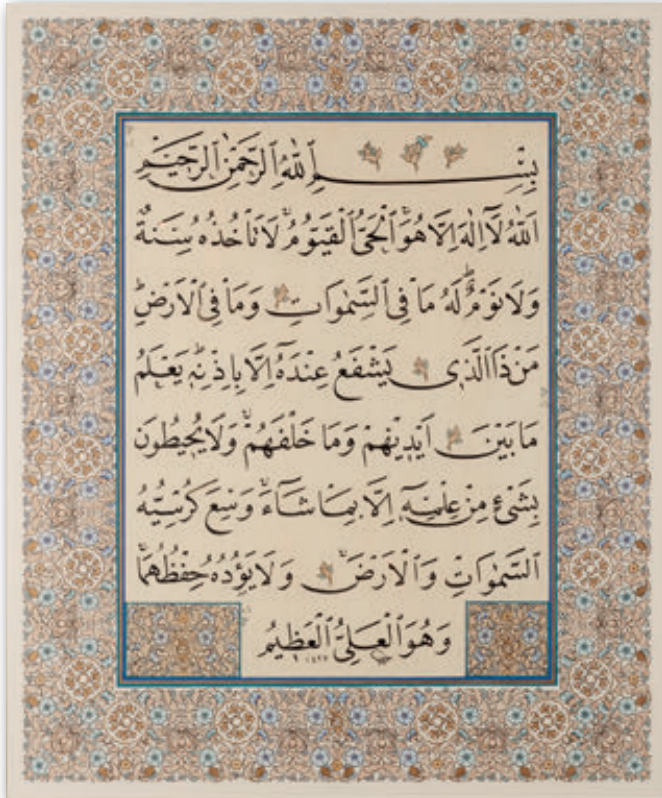 بِسْمِ اللّٰهِ الرَّحْمٰنِ الرَّحِيمِ
اَللّٰهُ لَٓا اِلٰهَ اِلَّا هُوَۚ اَلْحَيُّ الْقَيُّومُۚ لَا تَأْخُذُهُ سِنَةٌ
وَلَا نَوْمٌۜ لَهُ مَا فِي السَّمٰوَاتِ وَمَا فِي الْاَرْضِۜ
مَنْ ذَا الَّذِي يَشْفَعُ عِنْدَهُٓ اِلَّا بِاِذْنِهِۜ يَعْلَمُ
مَا بَيْنَ اَيْدِيهِمْ وَمَا خَلْفَهُمْۚ وَلَا يُحِيطُونَ
بِشَيْءٍ مِنْ عِلْمِهِٓ اِلَّا بِمَا شَٓاءَۚ وَسِعَ كُرْسِيُّهُ
السَّمٰوَاتِ وَالْاَرْضَۚ وَلَا يَؤُدُهُ حِفْظُهُمَاۚ
وَهُوَ الْعَلِيُّ الْعَظِيمُ